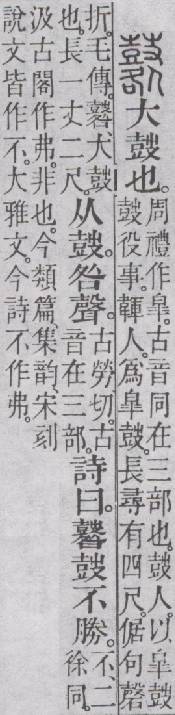 鼛大鼓也。周禮作皐。古音同在三部也。鼓人。以皐鼓
鼓役事。韗人。爲皐鼓。長尋有四尺。倨句磬
折。毛傳。鼛、大鼓
也。長一丈二尺。
从鼓。咎聲。古勞切。古
音在三部。
詩曰。鼛鼓不勝。不、二
徐同。
汲古閣作弗。非也。今類篇、集韵、宋刻
說文皆作不。大雅文。今詩不作弗。